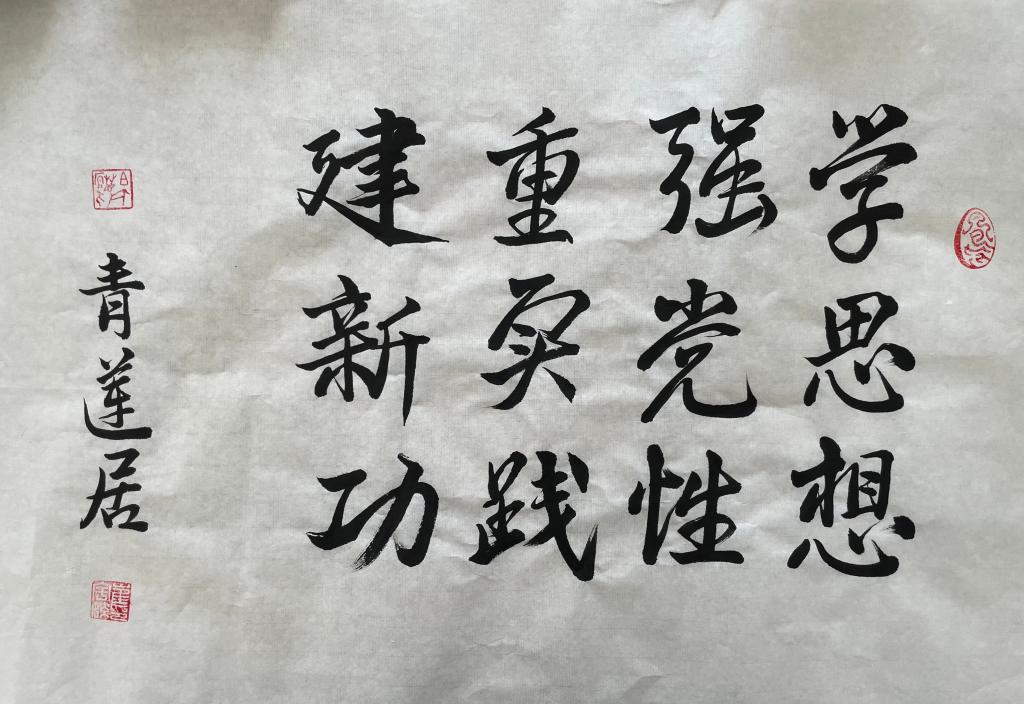 学思想
强党性
重实践
建新功
青莲居